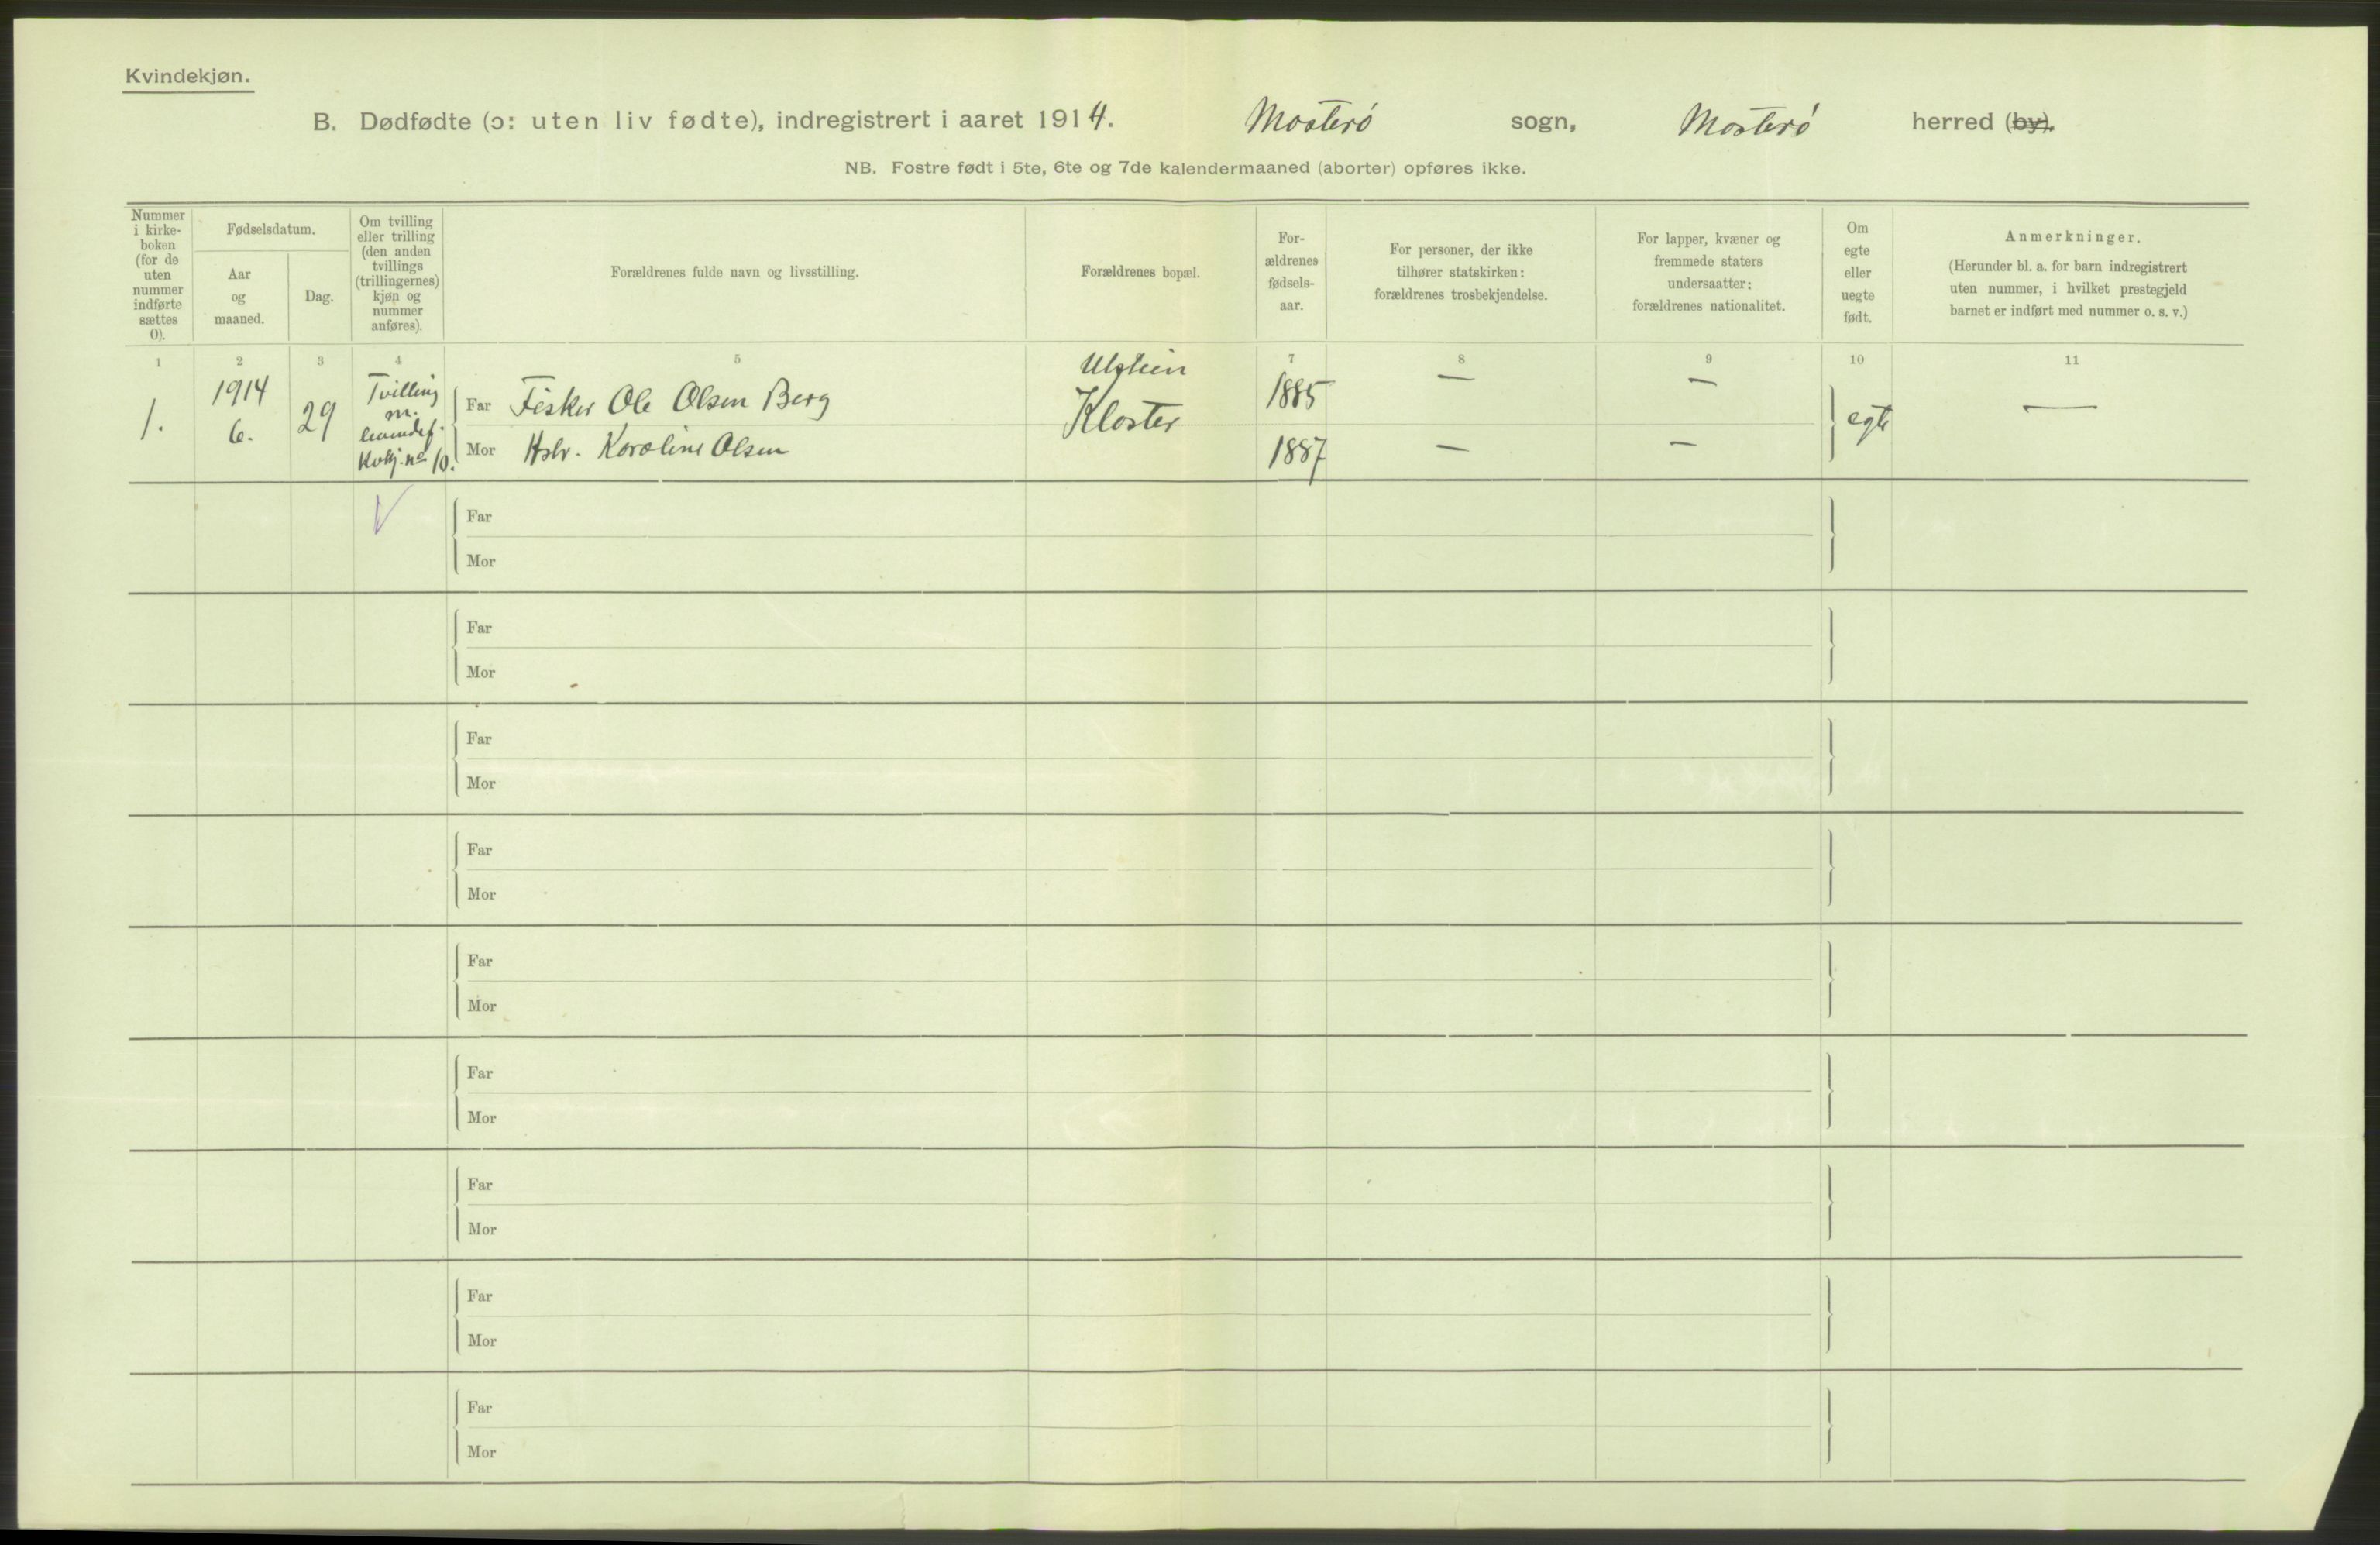 Kvindekjøn.
B. Dødfødte (ɔ: uten liv fødte), indregistrert i aaret 1914. Mosterö sogn, Mosterö herred (by).
NB. Fostre født i 5te, 6te og 7de kalendermaaned (aborter) opføres ikke.
Nummer
i kirke-
boken
(for de
uten
nummer
indførte
sættes
0).
Fødselsdatum.
Aar
og
maaned.
Dag.
Om tvilling
eller trilling
(den anden
tvillings
(trillingernes)
kjøn og
nummer
anføres).
Forældrenes fulde navn og livsstilling.
Forældrenes bopæl.
For-
ældrenes
fødsels-
aar.
For personer, der ikke
tilhører statskirken:
forældrenes trosbekjendelse.
For lapper, kvæner og
fremmede staters
undersaatter:
forældrenes nationalitet.
Om
egte
eller
uegte
født.
Anmerkninger.
(Herunder bl. a. for barn indregistrert
uten nummer, i hvilket prestegjeld
barnet er indført med nummer o. s. v.)
1 2 3 4 5 7 8 9 10 11
1.
1914
6.
29
Tvilling
m.
levendef.
Kvkj. no 10.
Far Fisker Ole Olsen Berg
Mor Hstr. Karoline Olsen
Utstein
Kloster
1885 — —
1887 — —
egte
—
Far
Mor
Far
Mor
Far
Mor
Far
Mor
Far
Mor
Far
Mor
Far
Mor
Far
Mor
Far
Mor